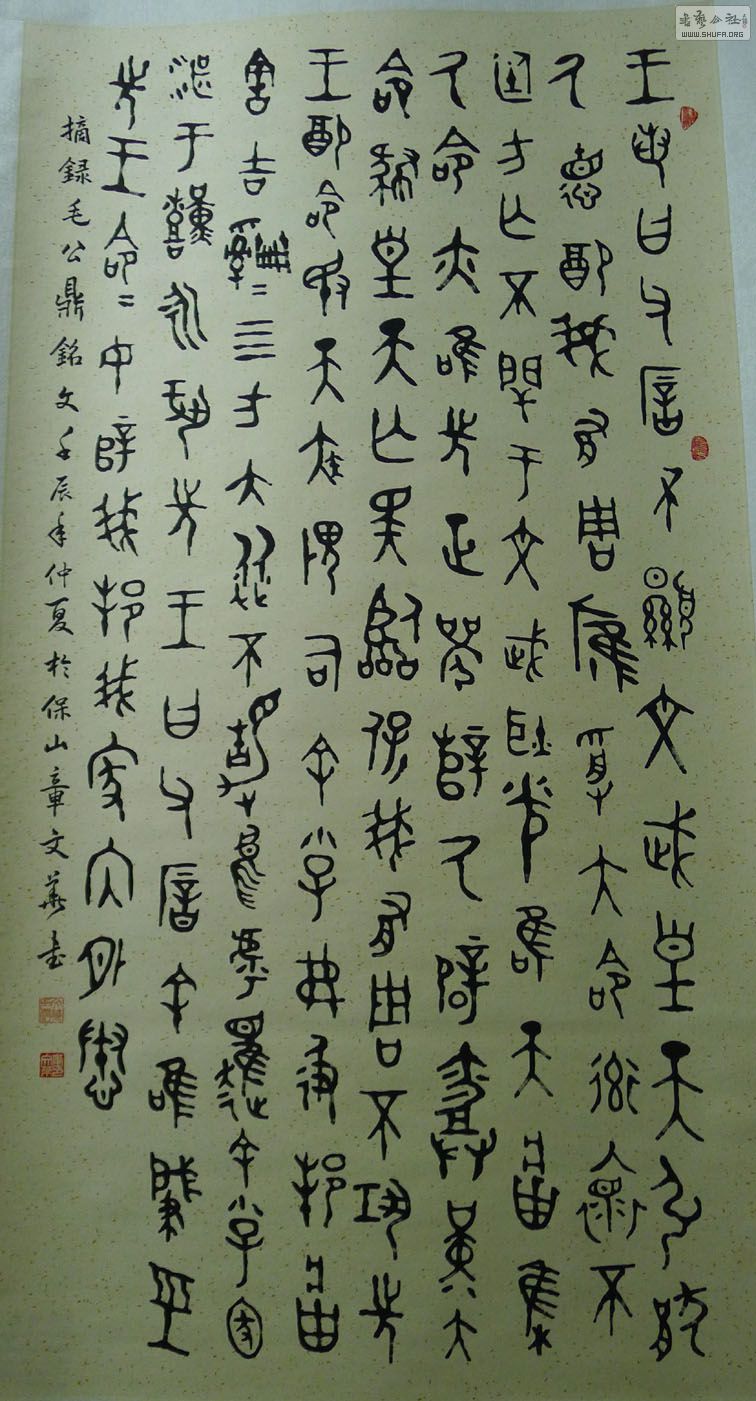 王若曰父厝不顯文武皇天引猒
厥德配我有周膺受大命率懷不
廷方亡不閈于文武耿光唯天將集
厥命亦唯先正辥厥辟堇大
命肆皇天亡斁臨保我有周不鞏先
王配命敃天疾畏司余小子弗彶邦將
害吉四方大縱不靜烏虖懼余小子圂
湛于艱永鞏先王王曰父厝余唯肇巠
先王命命女辥我邦我家內外惷
摘錄毛公鼎銘文壬辰年仲夏於保山章文華書
书艺公社
WWW.SHUFA.ORG